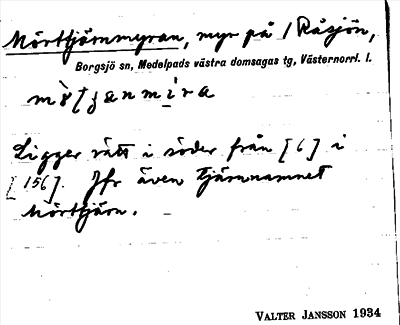 Mörttjärnmyran, myr på / Råsjön,
Borgsjö sn, Medelpads västra domsagas tg, Västernorrl. l.
Ligger rätt i söder från [6] i
[156]. Jfr även tjärnnamnet
Mörttjärn.
VALTER JANSSON 1934